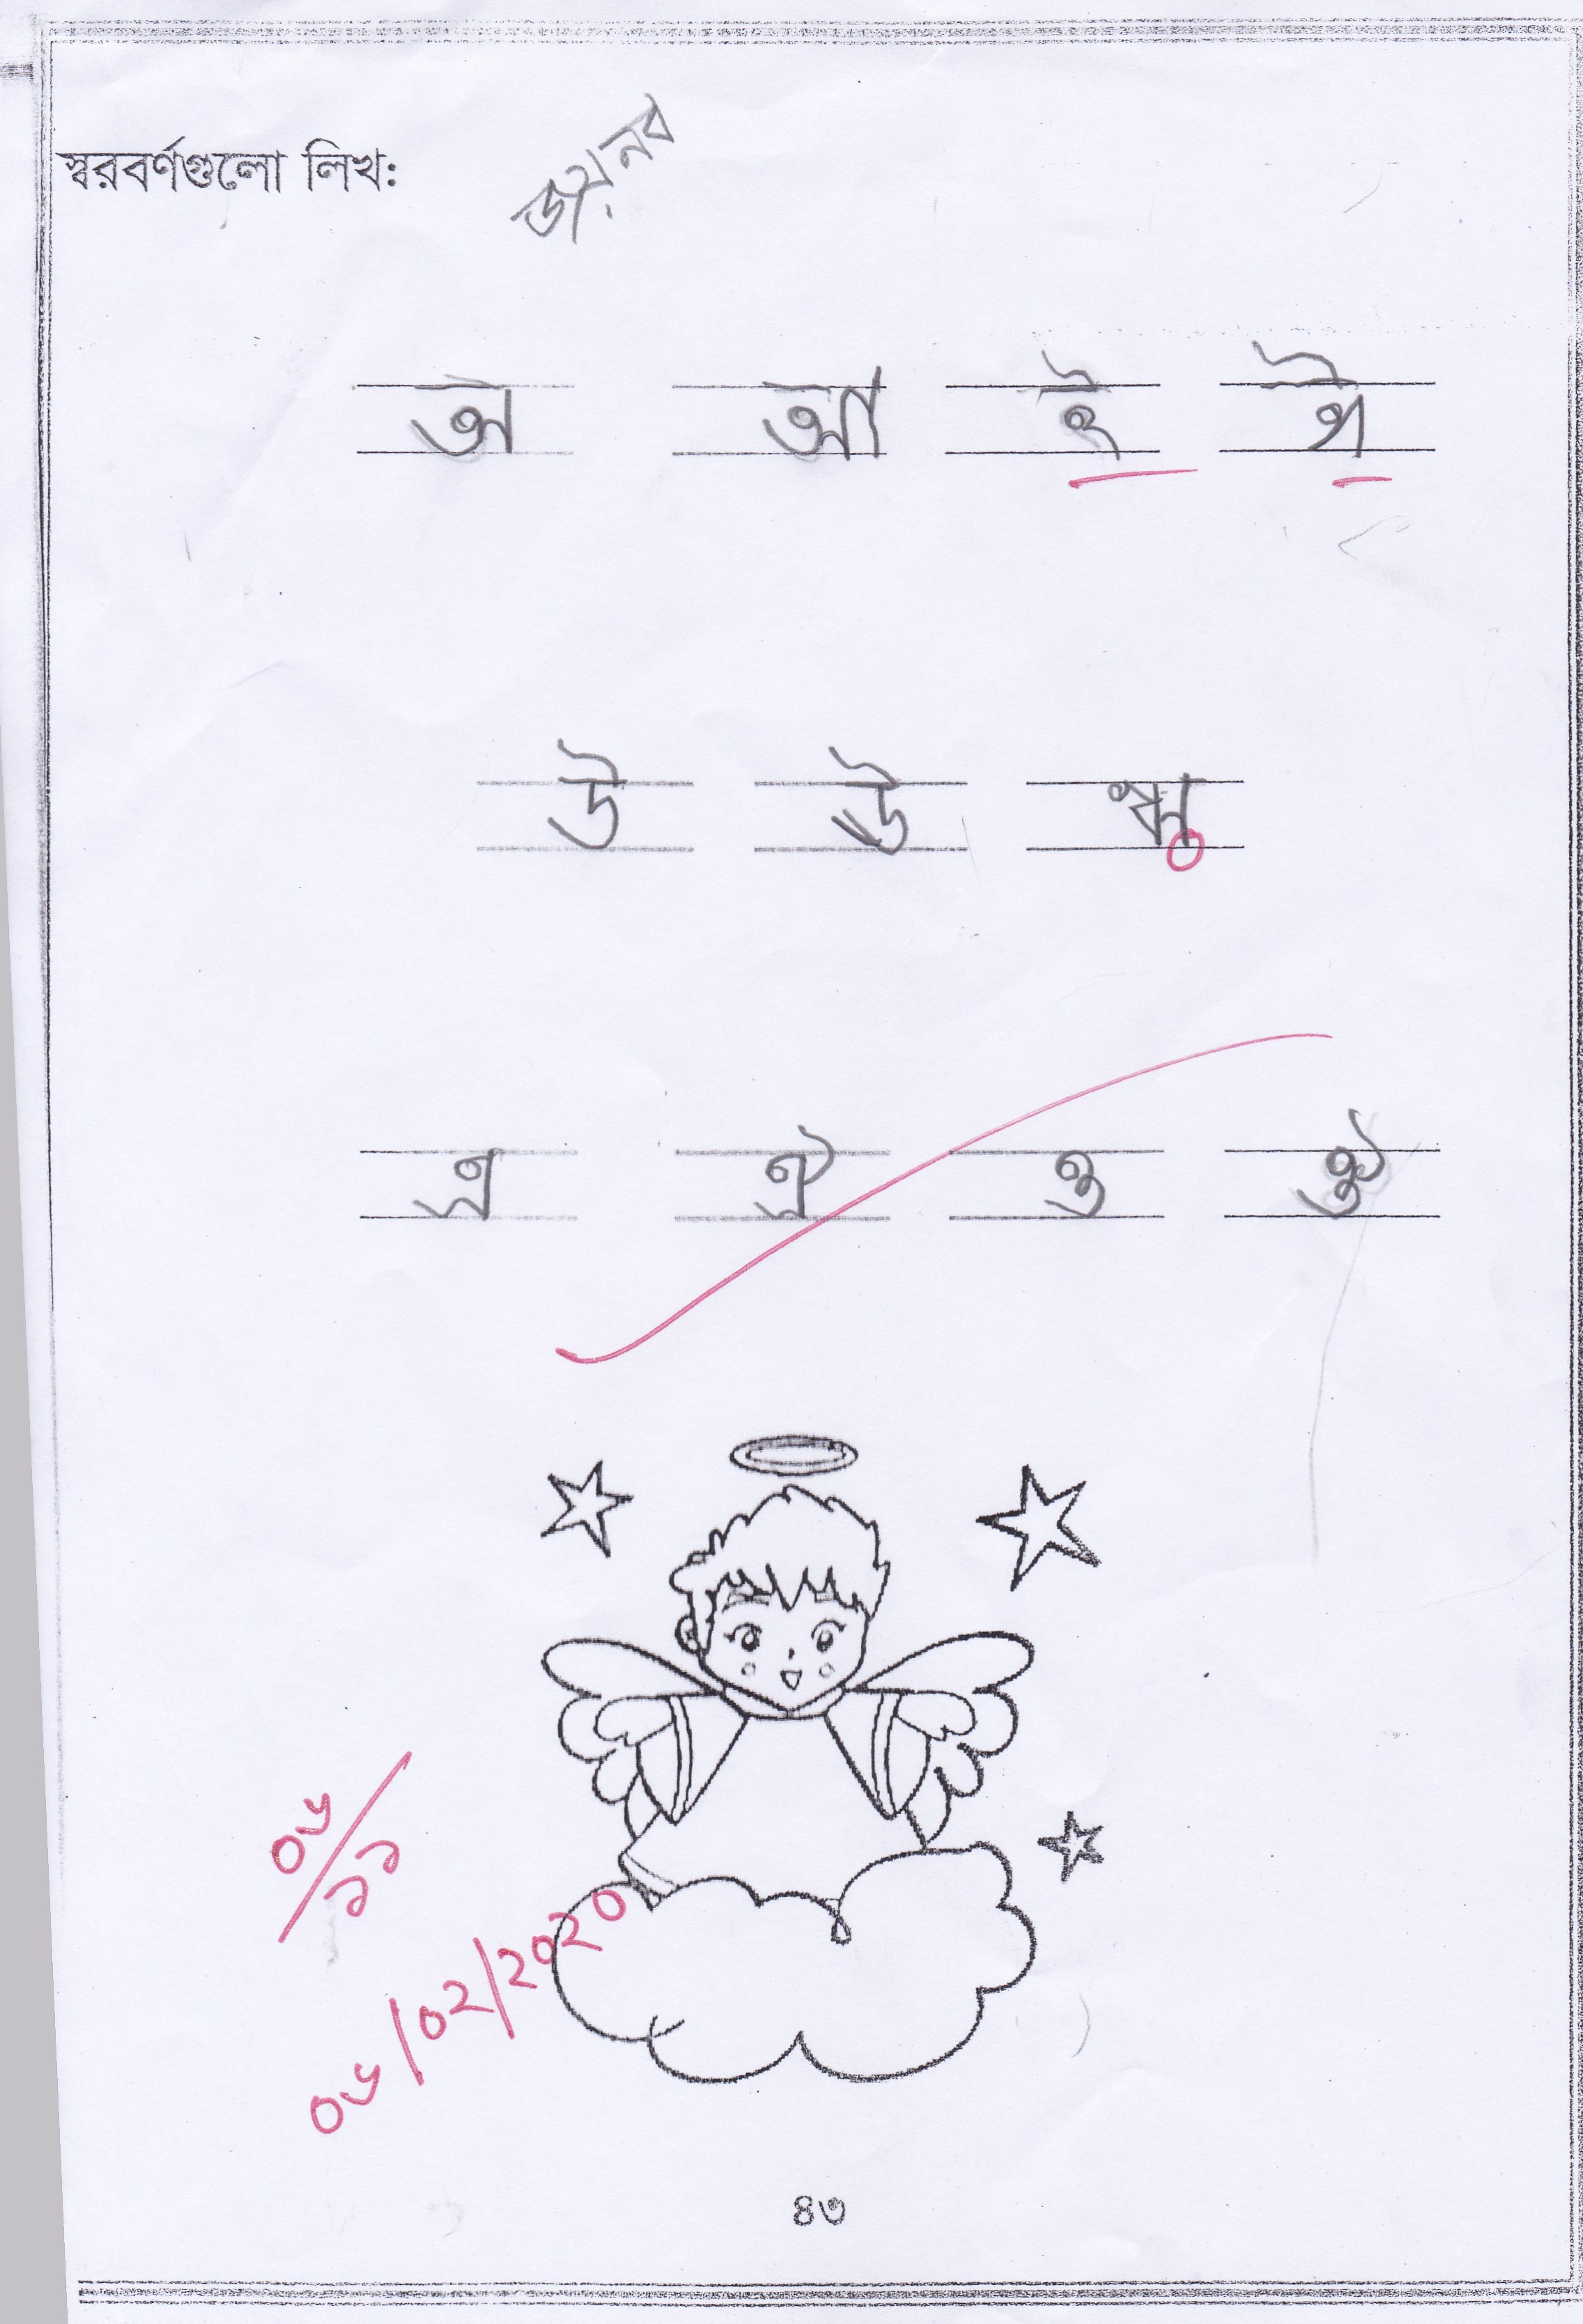 স্বরবর্ণগুলো লিখ:
জয়নব
অ আ ই ঈ
উ ঊ ঋ
এ ঐ ও ঔ
০৮
১১
০৮/০২/২০২০
৪৩